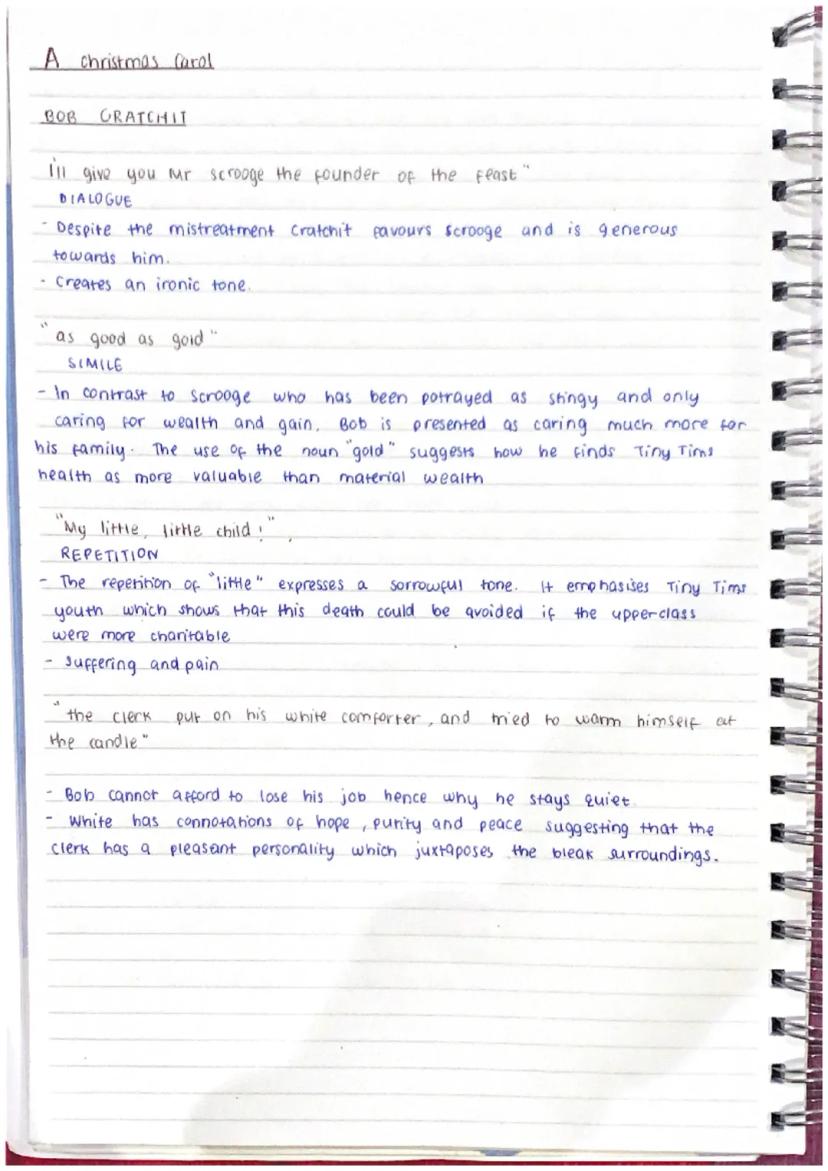 A christmas Carol
BOB CRATCHIT
i'll give you Mr scrooge the founder of the feast"
DIALOGUE
- Despite the mistreatment Cratchit favours scrooge and is generous
towards him.
- Creates an ironic tone.
"as good as gold"
SIMILE
- In contrast to Scrooge who has been potrayed as stingy and only
caring for wealth and gain, Bob is presented as caring much more for
his family. The use of the noun "gold" suggests how he finds Tiny Tims
health as more valuable than material wealth
"My little, little child!",
REPETITION
- The repetition of "little" expresses a sorrowful tone. It emphasises Tiny Tims
youth which shows that this death could be avoided if the upperclass
were more charitable
- Suffering and pain
"the clerk put on his white comforter, and tried to warm himself at
the candle"
- Bob cannot afford to lose his job hence why he stays quiet.
- White has connotations of hope, purity and peace suggesting that the
clerk has a pleasant personality which juxtaposes the bleak surroundings.